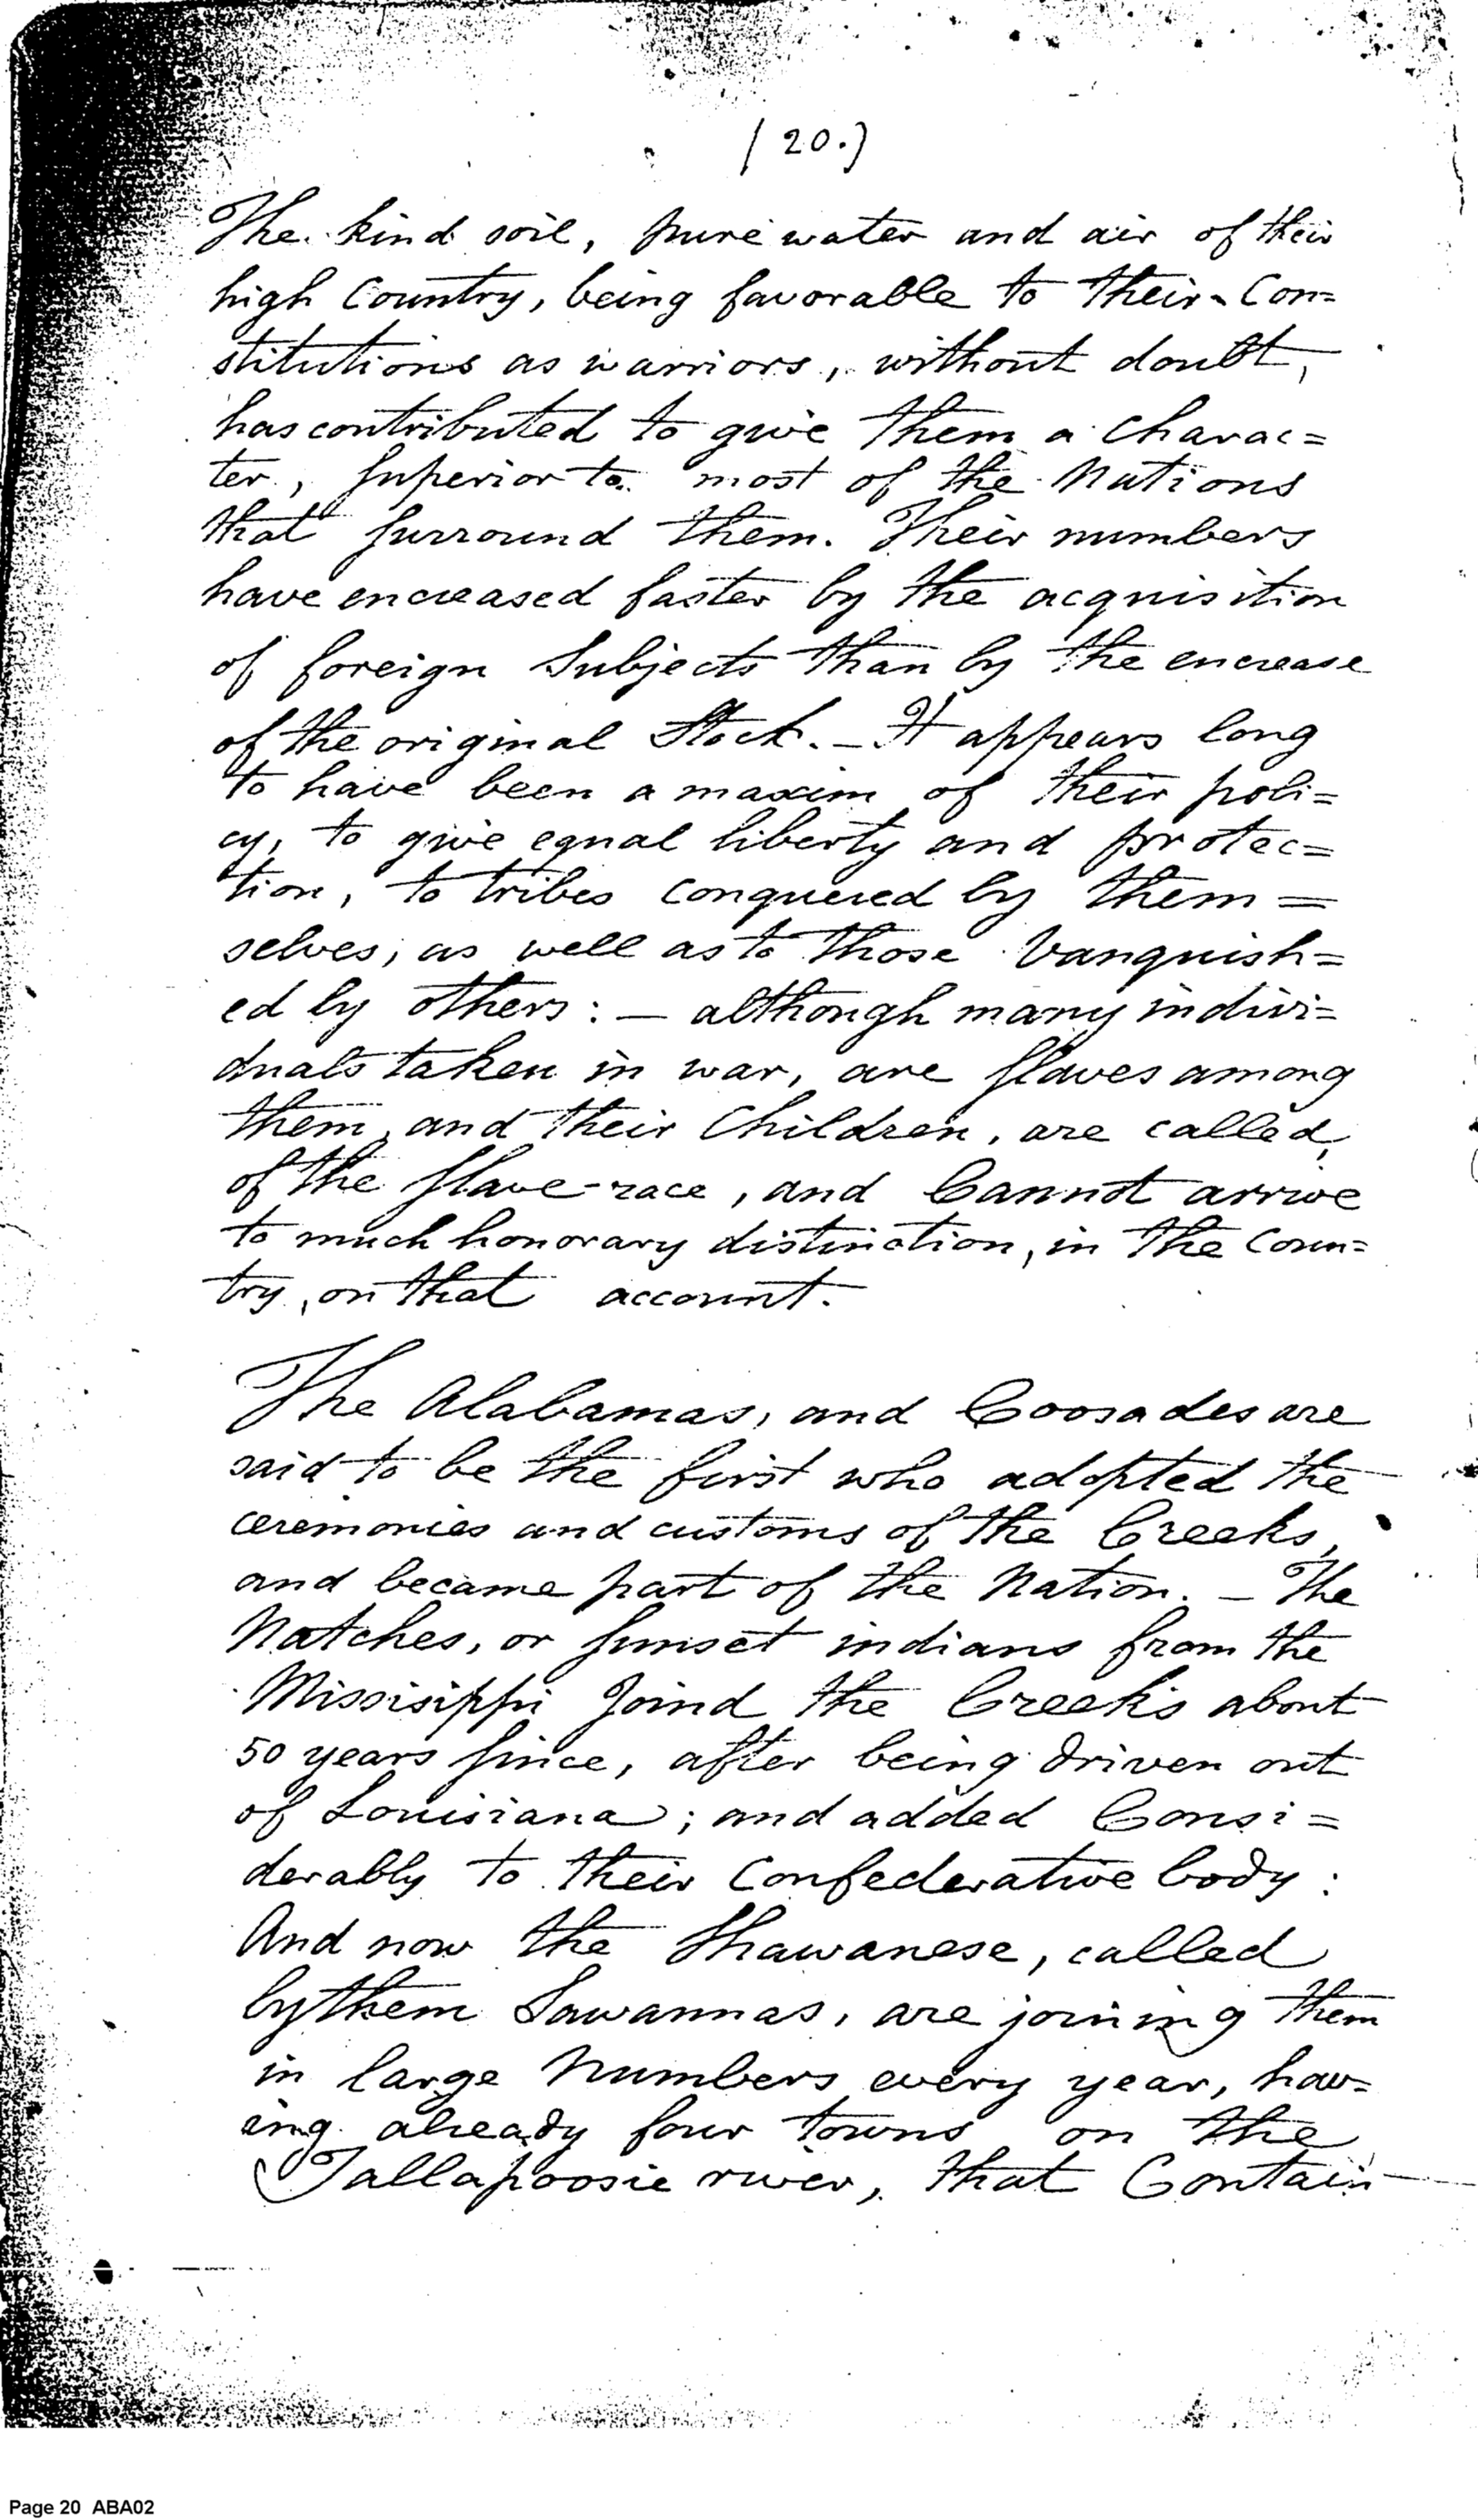 (20.)
The kind soil, pure water and air of their
high Country, being favorable to their Con=
stitutions as warriors, without doubt,
has contributed to give them a charac=
ter, superior to most of the Nations
that surround them. Their numbers
have encreased faster by the acquisition
of foreign Subjects than by the encrease
of the original Stock. — It appears long
to have been a maxim of their poli=
cy, to give equal liberty and protec=
tion, to tribes conquered by them=
selves, as well as to those Vanquish=
ed by others: — although many indivi=
duals taken in war, are slaves among
them, and their Children, are called,
of the slave-race, and Cannot arrive
to much honorary distinction, in the Coun=
try, on that account.
The Alabamas, and Coosades are
said to be the first who adopted the
ceremonies and customs of the Creeks,
and became part of the Nation. — The
Natches, or Sunset indians from the
Missisippi Joind the Creeks about
50 years since, after being driven out
of Louisiana; and added Consi=
derably to their Confederative body:
And now the Shawanese, called
by them Sawannas, are joining them
in large Numbers every year, hav=
ing already four towns on the
Tallapoosie river, that Contain
Page 20 ABA02